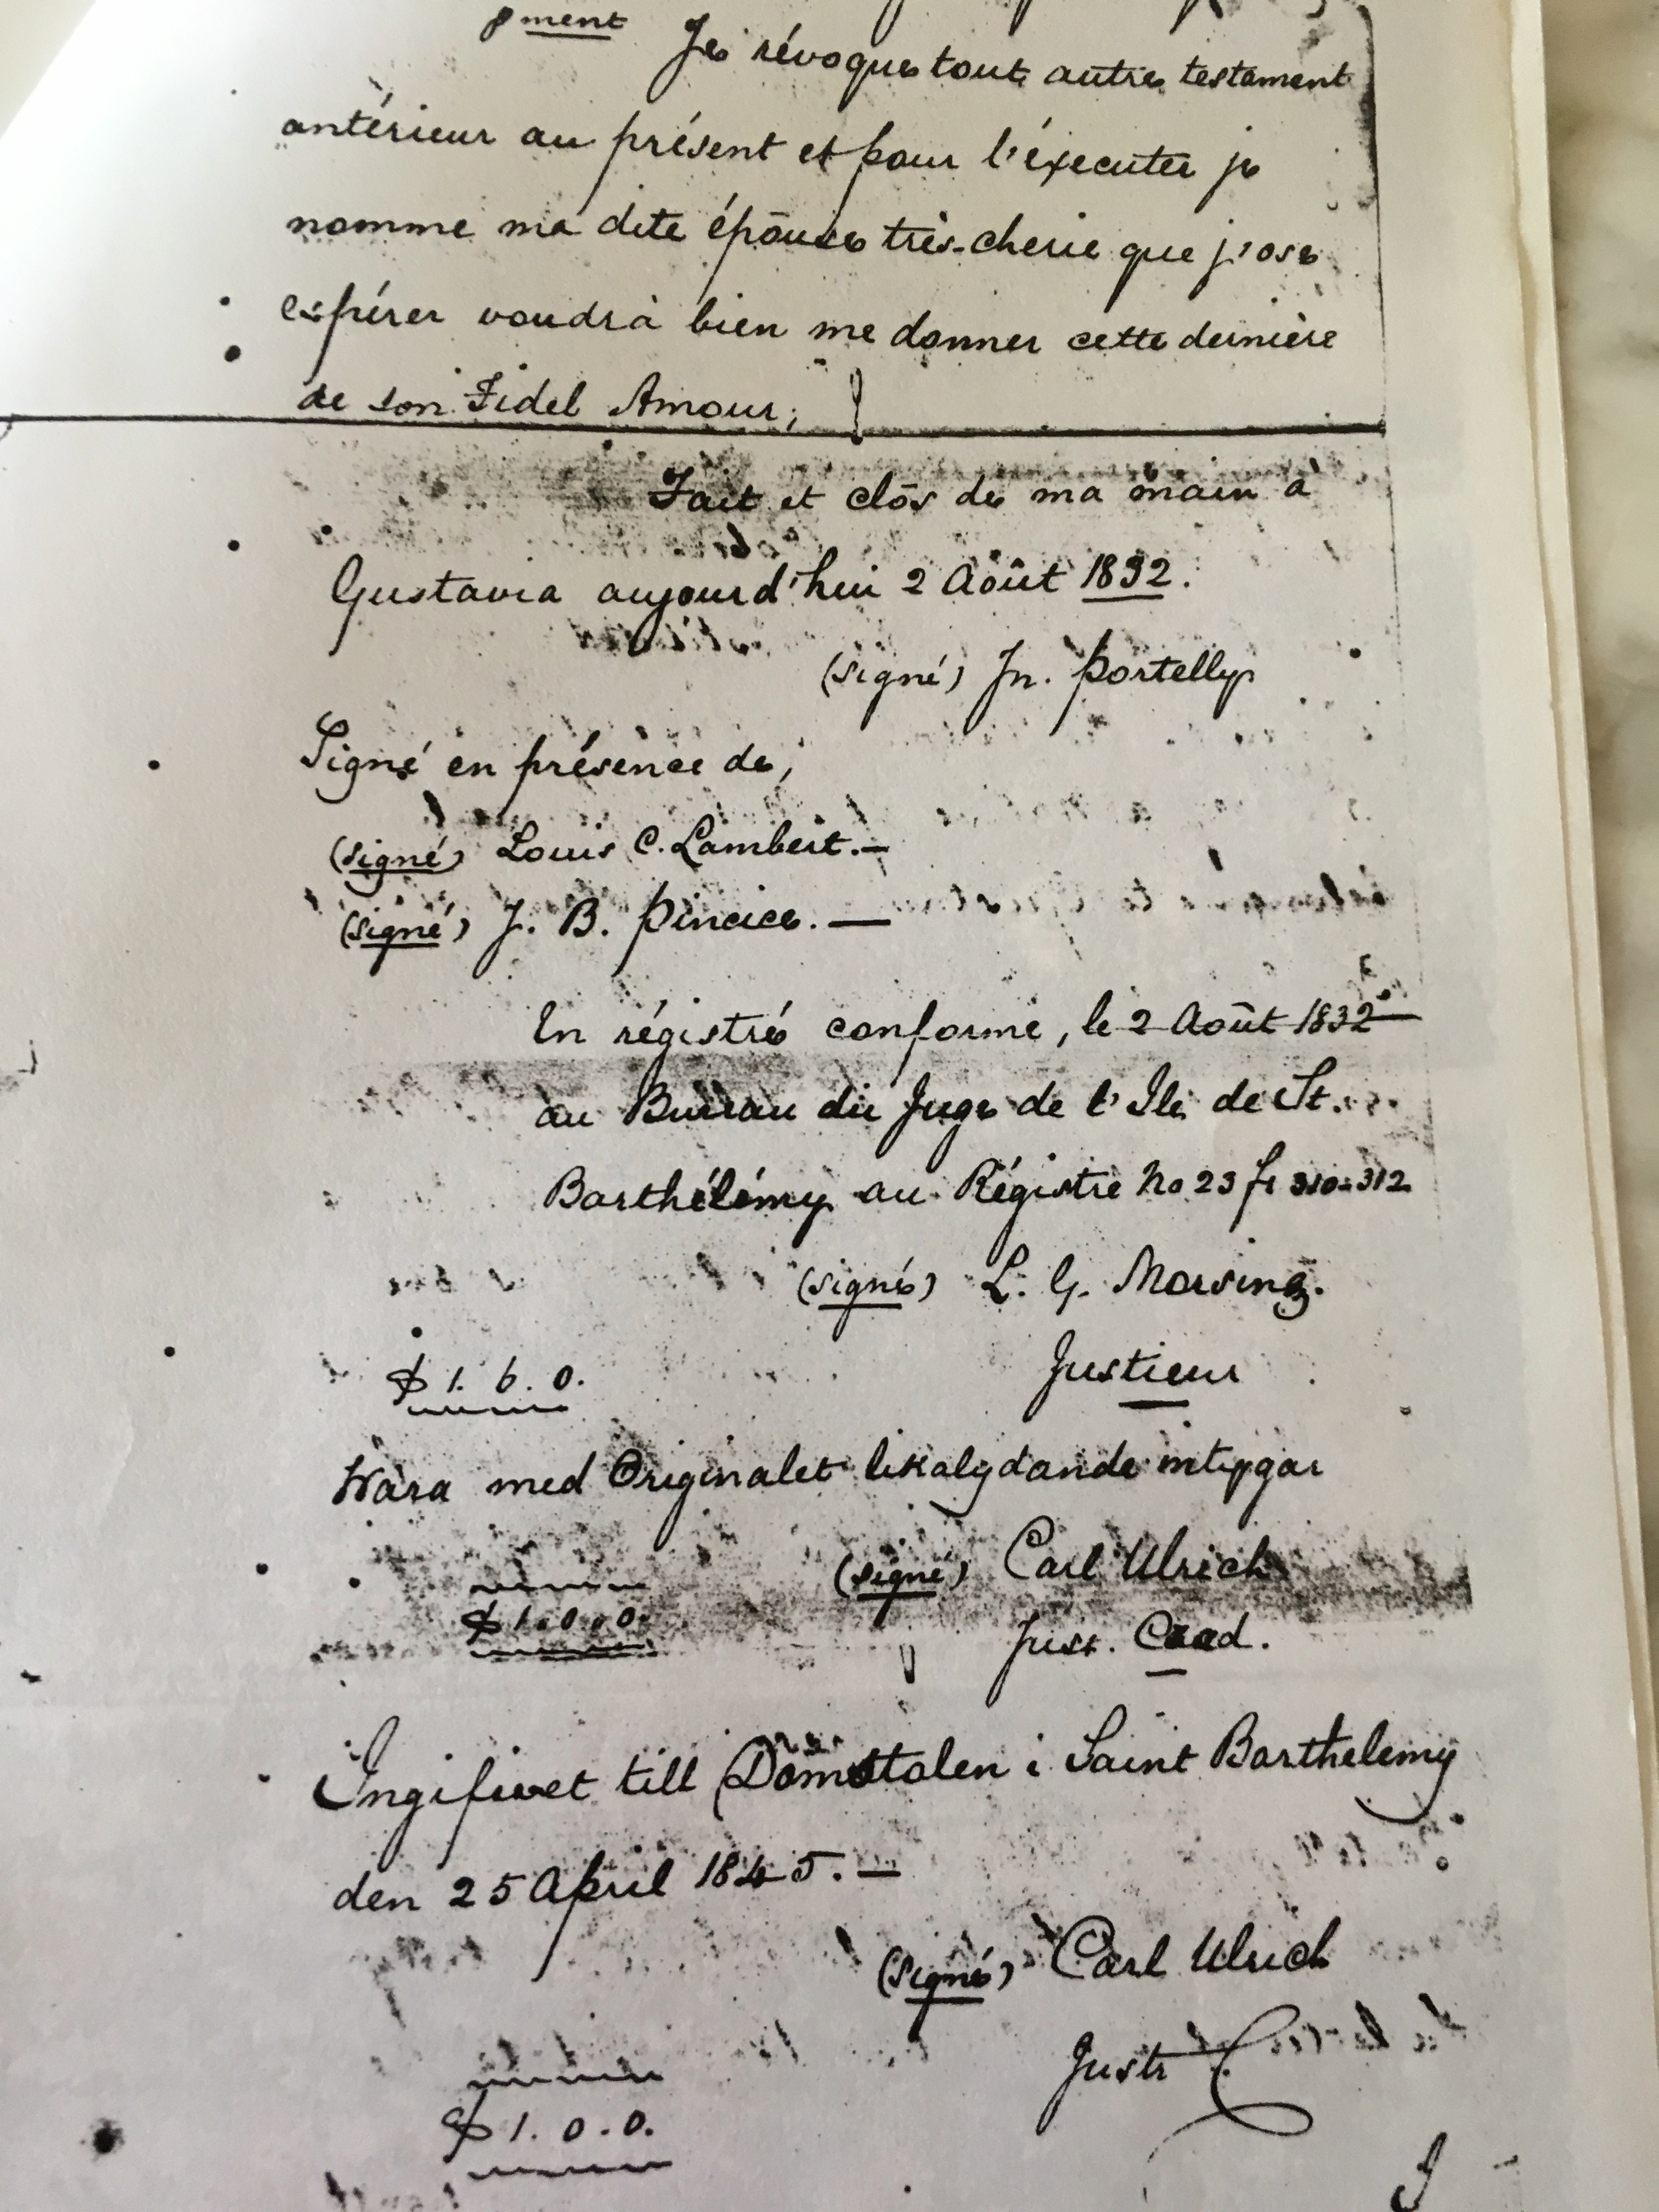 ment Je révoque tout autre testament
antérieur au présent et pour l'éxecuter je
nomme ma dite épouse très-cherie que j'ose
espérer voudrà bien me donner cette dernière
de son Fidel Amour,
Fait et clôs de ma main à
Gustavia aujourd'hui 2 Août 1832.
(signé) Jn. Portelly
Signé en présence de,
(signé) Louis C. Lambert.—
(signé) J. B. —
En régistré conforme, le 2 Août 1832—
au Bureau du Juge de l'Ile de St.
Barthélémy au Régistre No 23 fs 310-312
(signé) L. G. Morsing.
Justieur
$ 1. 6. 0.
Wara med Originalet likalydande
(signé) Carl Ulrich
$ 1.0.0.
Just.
till Domstolen i Saint Barthelemy
den 25 April 1845.—
(signé) Carl Ulrich
Justr
$ 1.0.0.